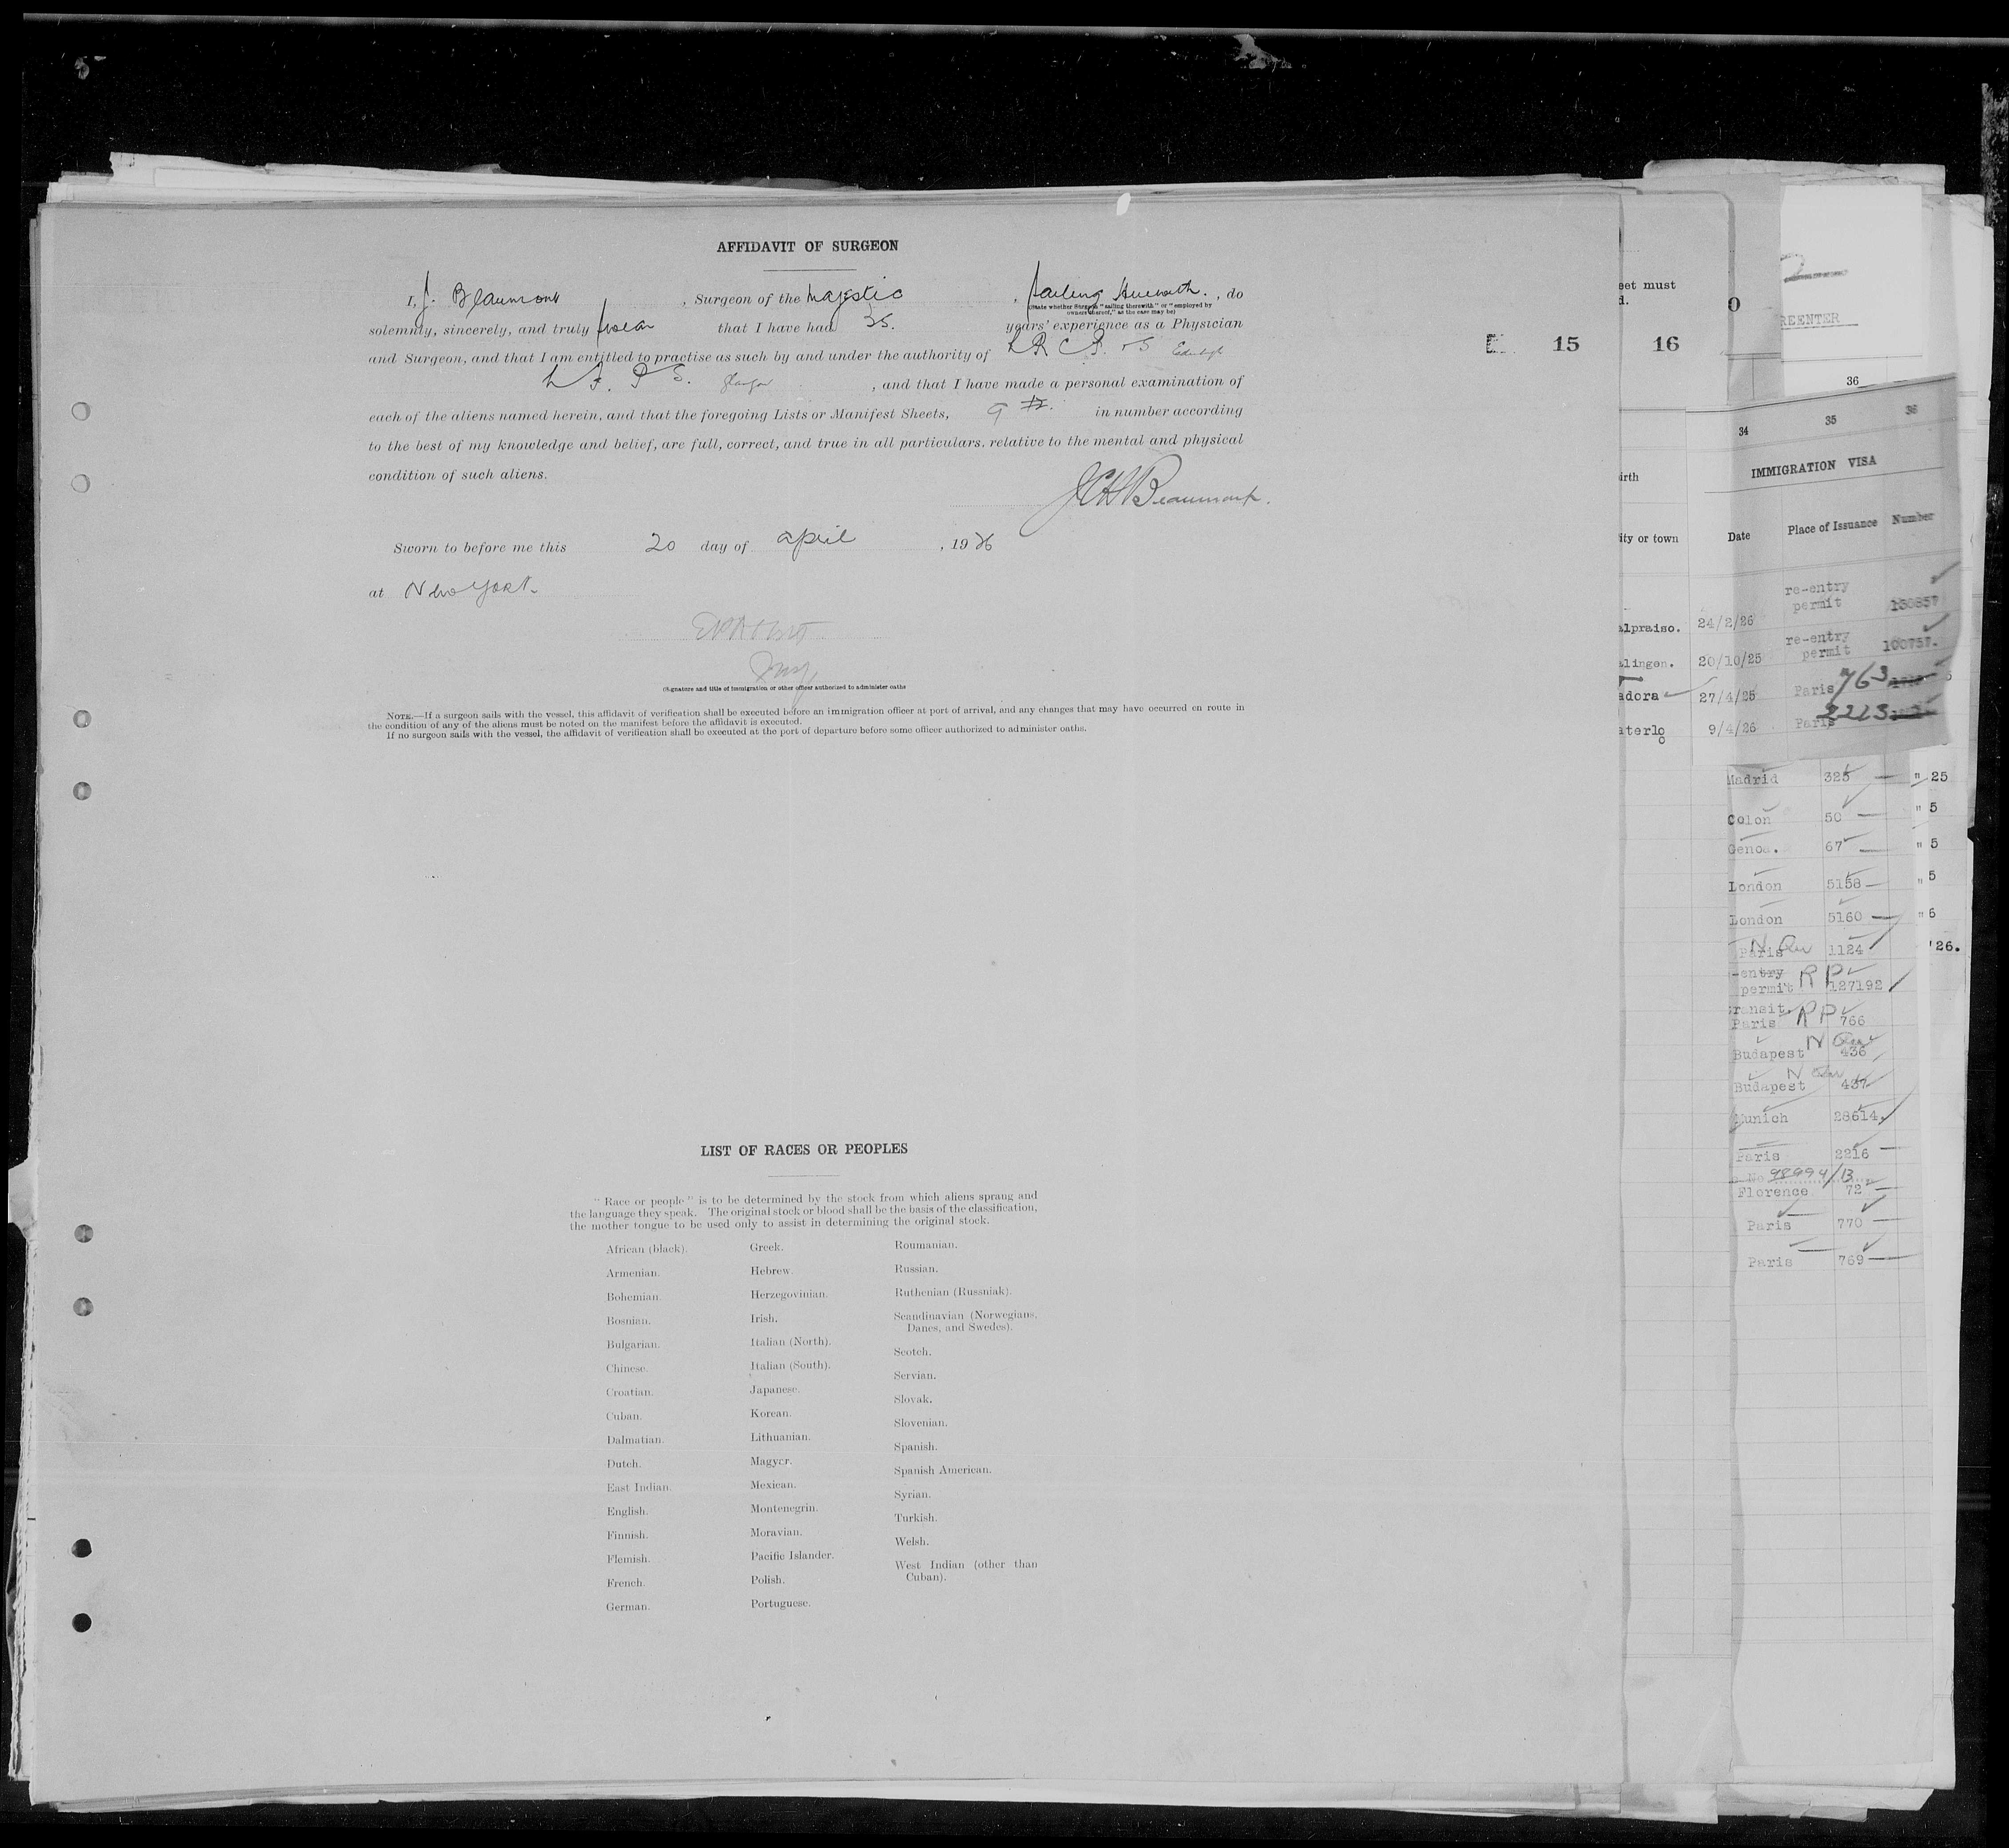 5
AFFIDAVIT OF SURGEON
I, J. Beaumont, Surgeon of the Majestic, Sailing therewith., do
(State whether Surgeon "sailing therewith" or "employed by
owners thereof," as the case may be)
solemnly, sincerely, and truly swear that I have had 35. years' experience as a Physician
and Surgeon, and that I am entitled to practise as such by and under the authority of L R C P. & S
L F. P S. Glasgow, and that I have made a personal examination of
each of the aliens named herein, and that the foregoing Lists or Manifest Sheets, 9 in number according
to the best of my knowledge and belief, are full, correct, and true in all particulars, relative to the mental and physical
condition of such aliens.
JCHBeaumont.
Sworn to before me this 20 day of april, 1926
at New York.
(Signature and title of immigration or other officer authorized to administer oaths
NOTE.—If a surgeon sails with the vessel, this affidavit of verification shall be executed before an immigration officer at port of arrival, and any changes that may have occurred en route in
the condition of any of the aliens must be noted on the manifest before the affidavit is executed.
If no surgeon sails with the vessel, the affidavit of verification shall be executed at the port of departure before some officer authorized to administer oaths.
LIST OF RACES OR PEOPLES
"Race or people" is to be determined by the stock from which aliens sprang and
the language they speak. The original stock or blood shall be the basis of the classification,
the mother tongue to be used only to assist in determining the original stock.
African (black).
Armenian.
Bohemian.
Bosnian.
Bulgarian.
Chinese.
Croatian.
Cuban.
Dalmatian.
Dutch.
East Indian.
English.
Finnish.
Flemish.
French.
German.
Greek.
Hebrew.
Herzegovinian.
Irish.
Italian (North).
Italian (South).
Japanese.
Korean.
Lithuanian.
Magyar.
Mexican.
Montenegrin.
Moravian.
Pacific Islander.
Polish.
Portuguese.
Roumanian.
Russian.
Ruthenian (Russniak).
Scandinavian (Norwegians,
Danes, and Swedes).
Scotch.
Servian.
Slovak.
Slovenian.
Spanish.
Spanish American.
Syrian.
Turkish.
Welsh.
West Indian (other than
Cuban).
15 16
eet must
d.
0
2
REENTER
36
34 35 36
IMMIGRATION VISA
irth
ity or town Date Place of Issuance Number
re-entry
permit
alpraiso. 24/2/26
re-entry
permit 100757.
lingen. 20/10/25
adora 27/4/25 Paris 763
aterloo 9/4/26 Paris 2213
Madrid 325 " 25
Colon 50 " 5
Genoa. 67 " 5
London 5158 " 5
London 5160 " 6
Paris 1124 ' 26.
-entry
permit R P 127192
ransit.
Paris R P 766
Budapest 436
Budapest 437
Munich 28614.
Paris 2216
No 98994/13
Florence 72
Paris 770
Paris 769